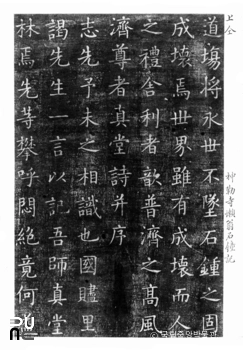 道場將永世不墜石鍾之固
成壞焉世界雖有成壞而人
之禮舍利者歆普濟之髙風
濟尊者真堂詩并序
志先予未之相識也國贐里
謁先生一言以記吾師真堂
林焉先䓁攀呼悶絶竟何
神勒寺懶翁石鐘記
국립중앙박물관